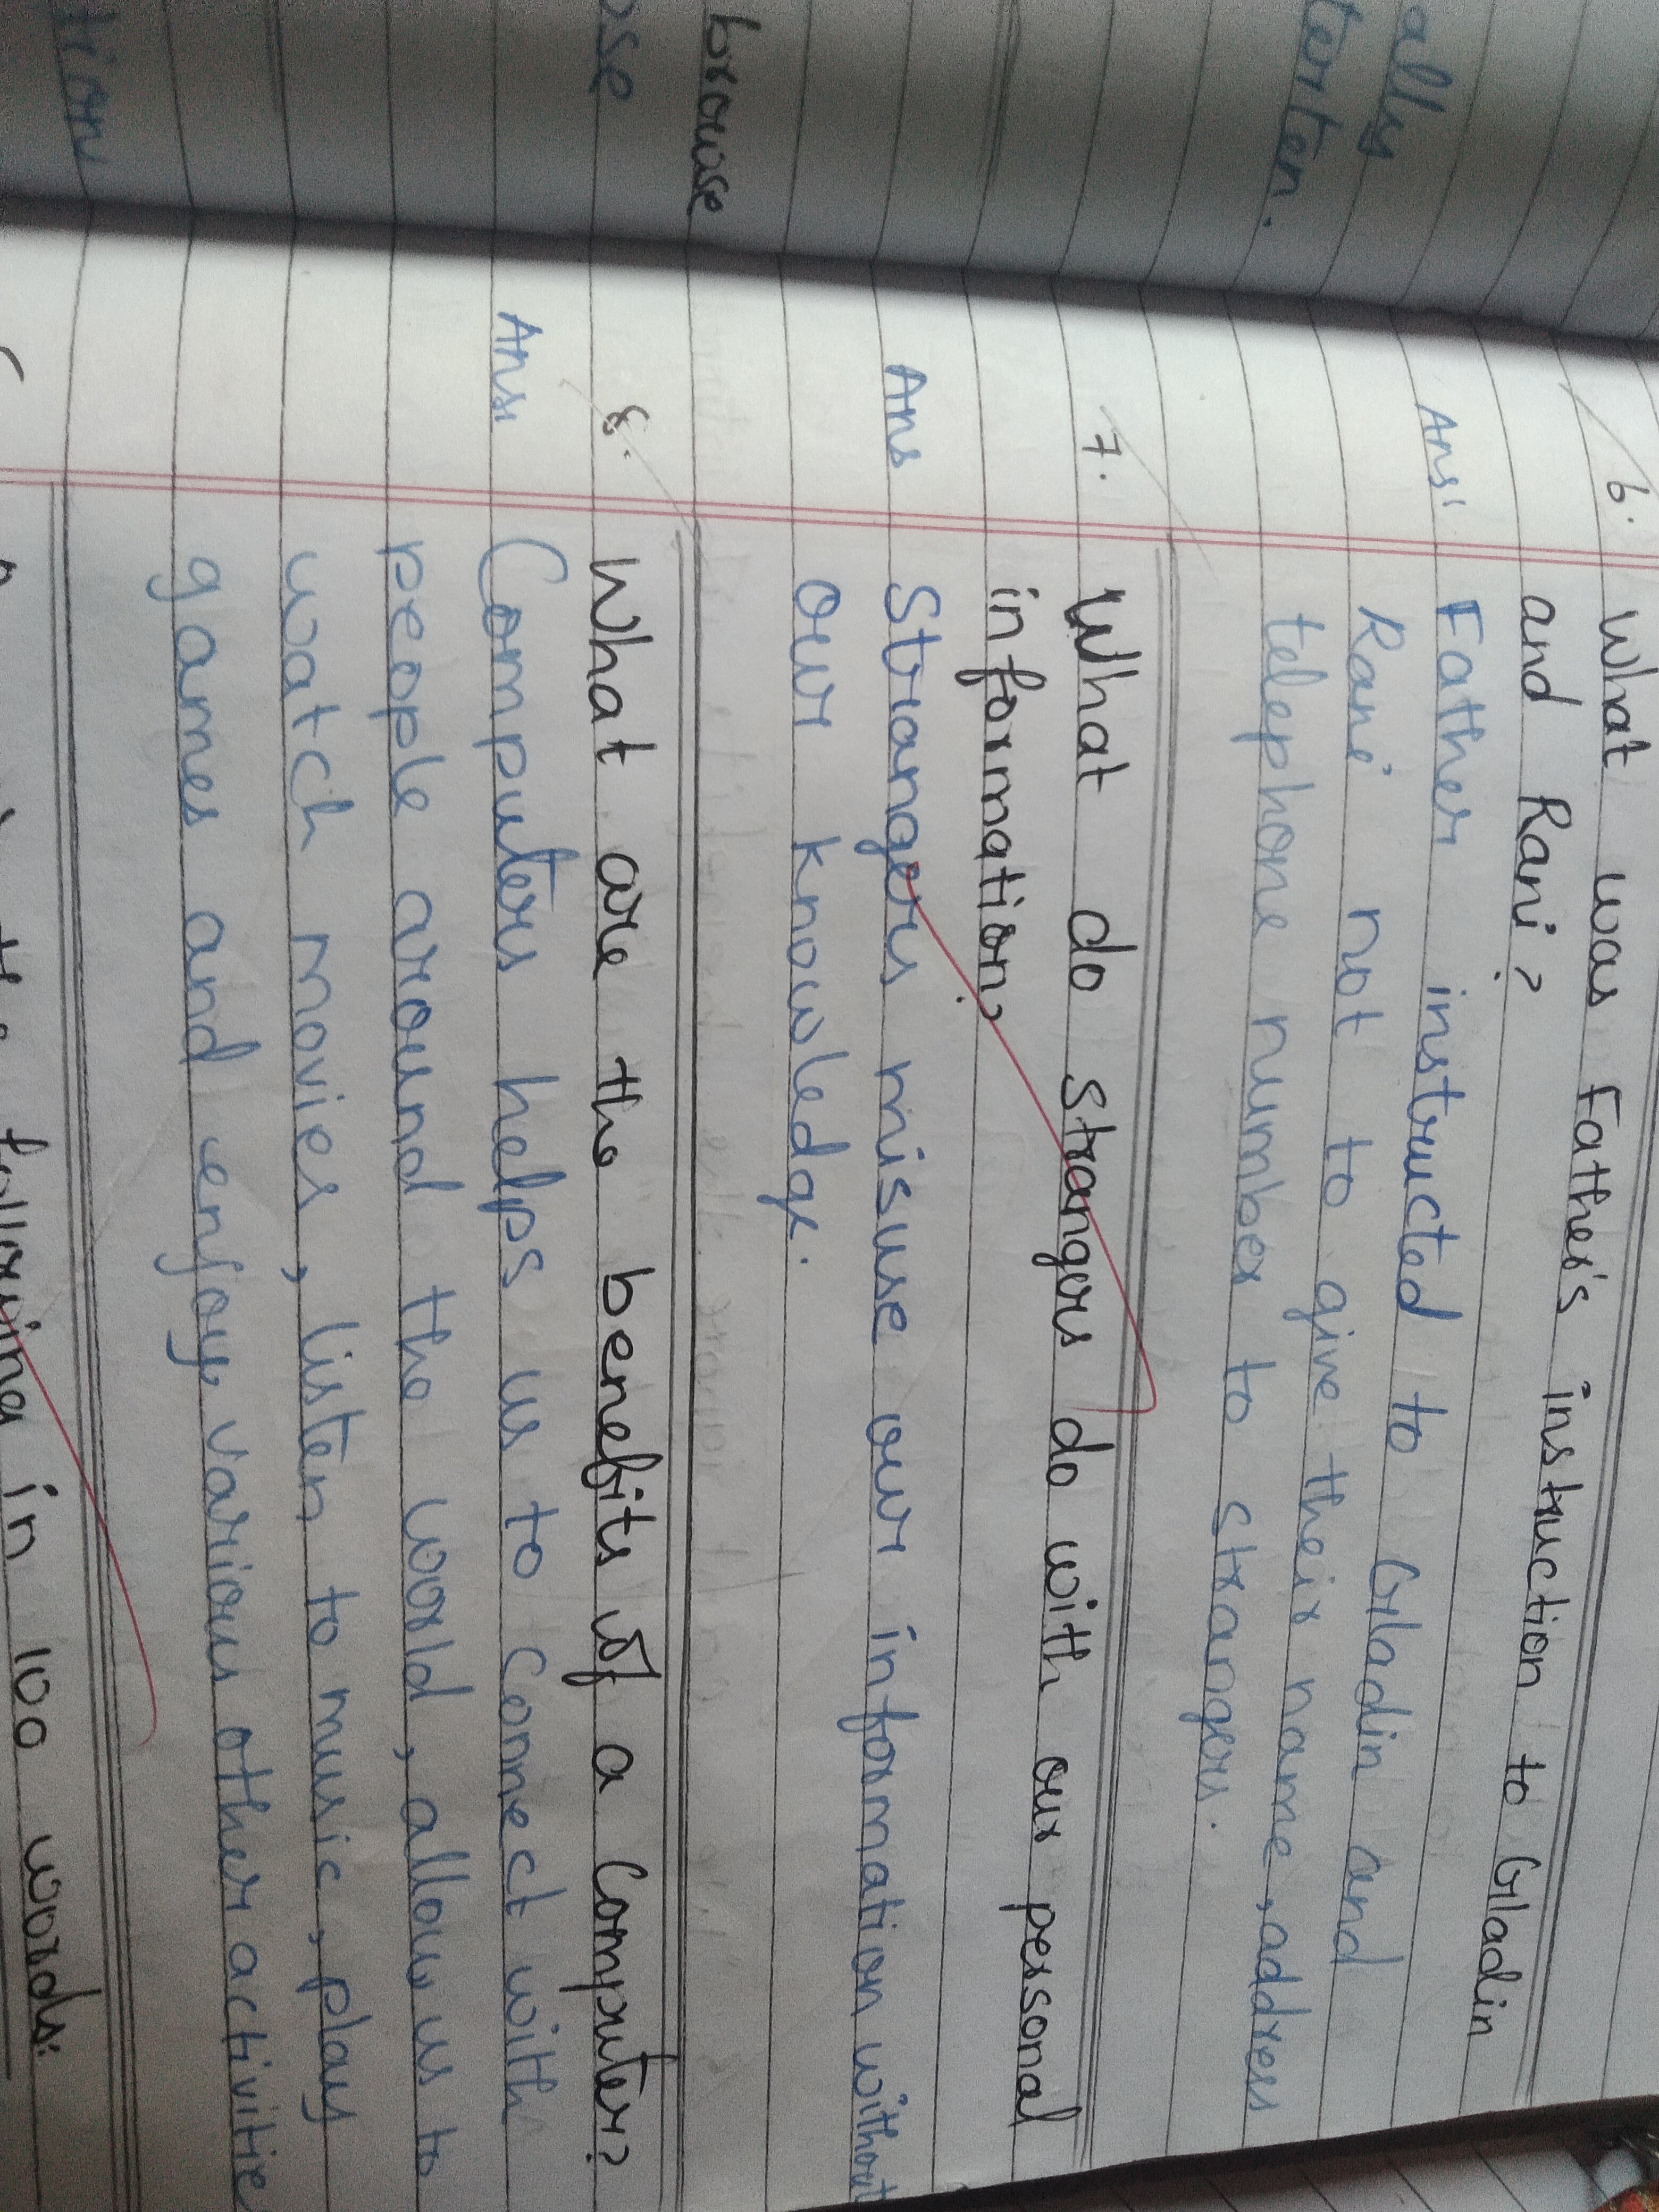 ally
terten.
browse
ose
6. What was Father's instruction to Gladin
and Rani?
Ans: Father instructed to Gladin and
Rani not to give their name, address
telephone number to strangers.
7. What do strangers do with our personal
information?
Ans Strangers misuse our information without
our knowledge.
8. What are the benefits of a Computer?
Ans: Computers helps us to Connect with
people around the world, allow us to
watch movies, listen to music, play
games and enjoy various other activitie
following in 100 words: